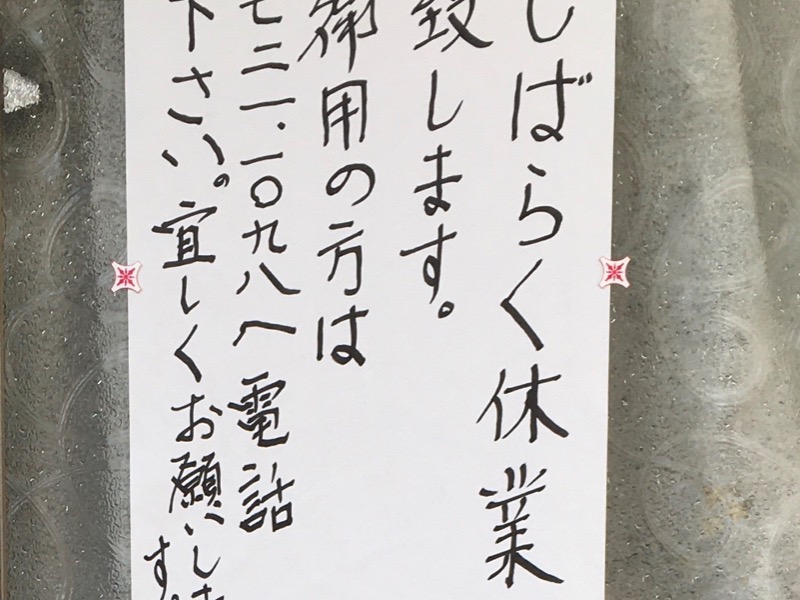 しばらく休業
致します。
御用の方は
七二一.一〇九八へ電話
下さい。宜しくお願いしま
す。